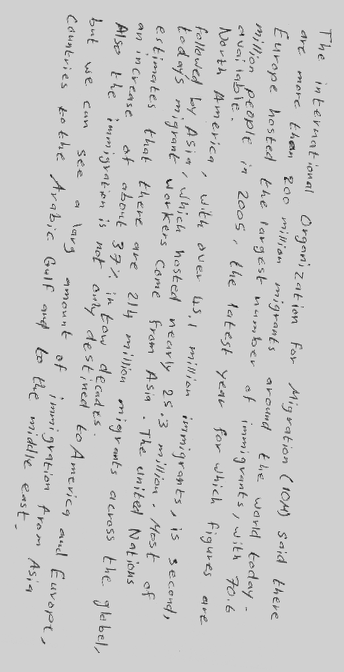 The international Organization for Migration (IOM) said there
are more than 200 million migrants around the world today.
Europe hosted the largest number of immigrants, with 70.6
million people in 2005, the latest year for which figures are
available.
North America, with over 45.1 million immigrants, is second,
followed by Asia, which hosted nearly 25.3 million. Most of
todays migrant workers come from Asia. The united Nations
estimates that there are 214 million migrants across the globel,
an increase of about 37% in tow decades.
Also the immigration is not only destined to America and Europe,
but we can see a larg amount of immigration from Asia
Countries to the Arabic Gulf and to the middle east.